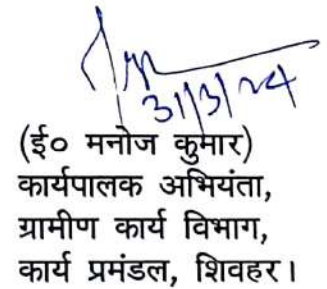 31/3/24
(ई० मनोज कुमार)
कार्यपालक अभियंता,
ग्रामीण कार्य विभाग,
कार्य प्रमंडल, शिवहर।